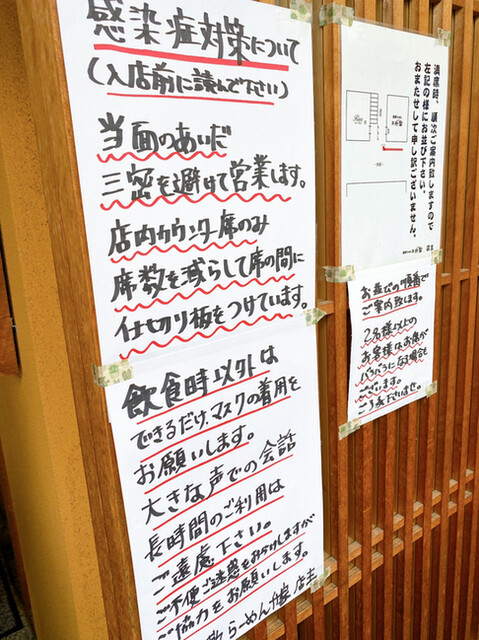 感染症対策について
(入店前に読んで下さい)
当面のあいだ
三密を避けて営業します。
店内カウンター席のみ
席数を減らして席の間に
仕切り板をつけています。
飲食時以外は
できるだけ、マスクの着用を
お願いします。
大きな声での会話
長時間のご利用は
ご遠慮下さい。
ご不便ご迷惑をおかけしますが
ご協力をお願いします。
らーめん
店主
満席時、順次ご案内致しますので
左記の様にお並び下さい。
おまたせして申し訳ございません。
店主
お並びの順番で
ご案内致します。
2名様以上の
お客様はお席が
バラバラになる場合も
ございます。
ご了承下さいませ。